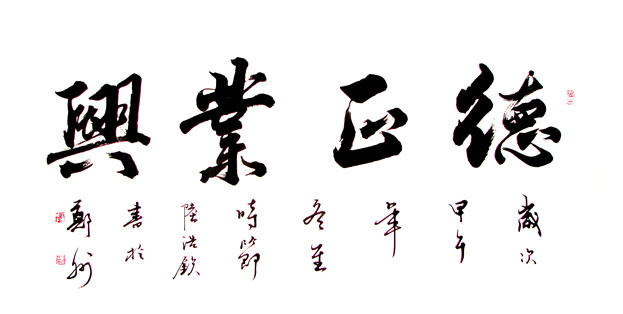 德正業興
歲次
甲午
年
冬至
時節
陸浩欽
書於
鄭州